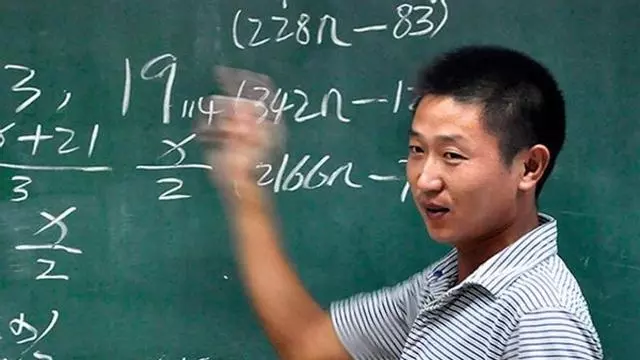 (228n-83)
3, 19 114 (342n-1
x+21
3
x
2
(2166n-
x
2